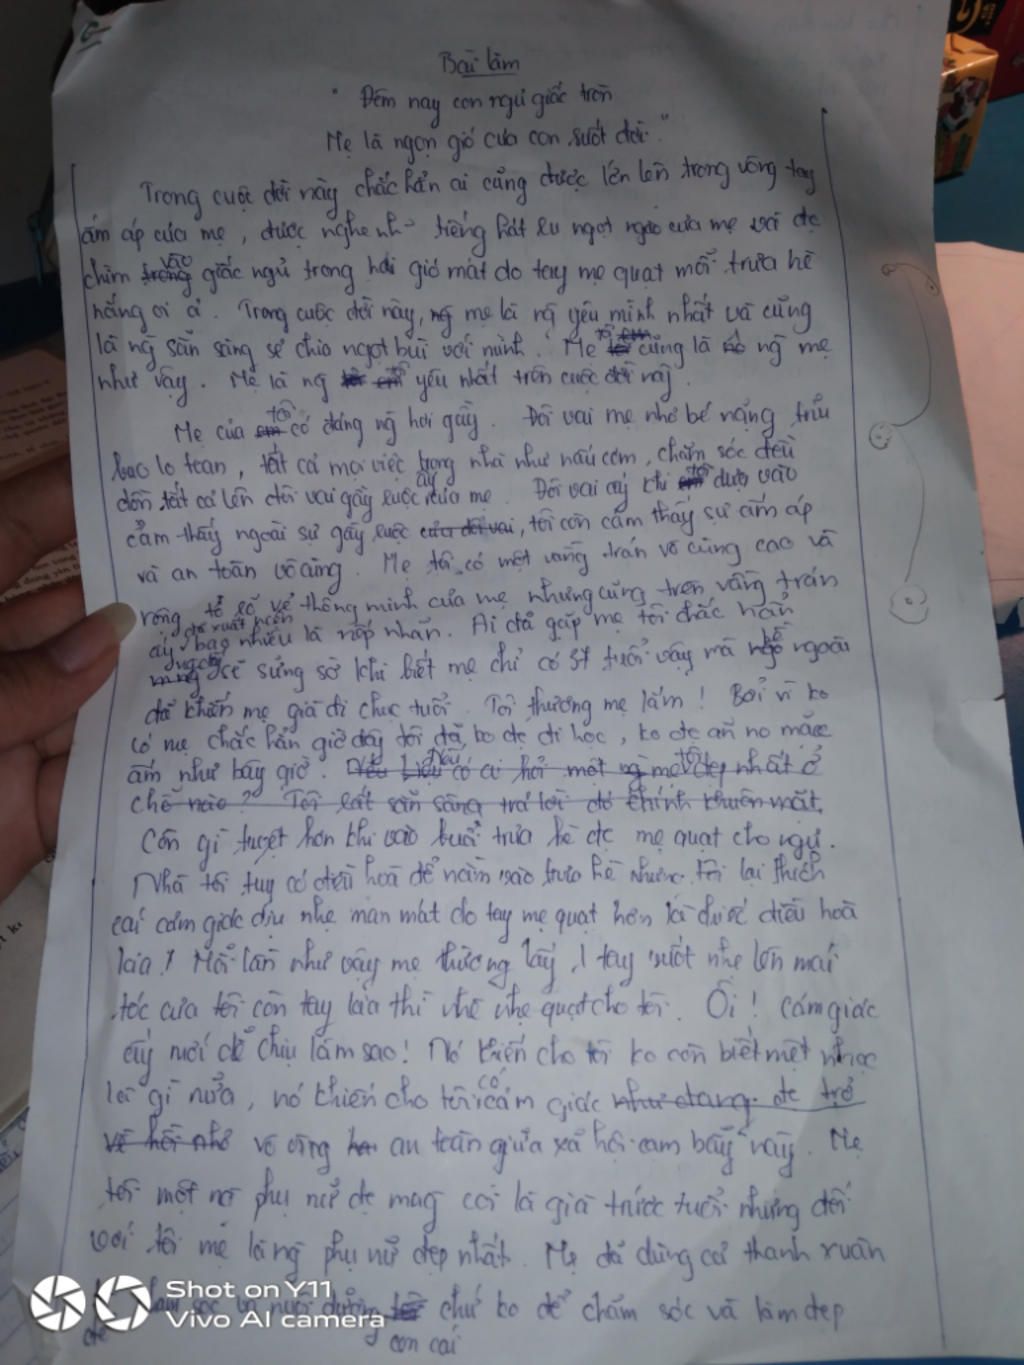 Bài làm
" Đêm nay con ngủ giấc tròn
Mẹ là ngọn gió của con suốt đời "
Trong cuộc đời này chắc hẳn ai cũng được lớn lên trong vòng tay
ấm áp của mẹ, được nghe tiếng hát ru ngọt ngào của mẹ và đc
chìm vào giấc ngủ trong hơi gió mát do tay mẹ quạt mỗi trưa hè
nắng oi ả. Trong cuộc đời này, mẹ là ng yêu mình nhất và cũng
là ng sẵn sàng sẻ chia ngọt bùi với mình. Mẹ tôi cũng là ng mẹ
như vậy. Mẹ là ng yêu nhất trên cuộc đời này.
Mẹ của tôi có dáng ng hơi gầy. Đôi vai mẹ nhỏ bé nặng trĩu
bao lo toan, tất cả mọi việc trong nhà như nấu cơm, chăm sóc đều
dồn tất cả lên đôi vai gầy guộc ấy của mẹ. Đôi vai ấy khi tôi dựa vào
cảm thấy ngoài sự gầy guộc, tôi còn cảm thấy sự ấm áp
và an toàn vô cùng. Mẹ tôi có một vầng trán vô cùng cao và
rộng tỏ rõ vẻ thông minh của mẹ nhưng cũng trên vầng trán
ấy đã xuất hiện bao nhiêu là nếp nhăn. Ai đã gặp mẹ tôi chắc hẳn
sẽ sửng sờ khi biết mẹ chỉ có 37 tuổi vậy mà ngoài
đã khiến mẹ già đi chục tuổi. Tôi thương mẹ lắm! Bởi vì ko
có mẹ chắc hẳn giờ đây tôi đã ko đc đi học, ko đc ăn no mặc
ấm như bây giờ. Nếu có ai hỏi một mẹ tôi đẹp nhất ở
chỗ nào? Tôi rất sẵn sàng trả lời đó chính khuôn mặt.
Còn gì tuyệt hơn khi vào buổi trưa hè đc mẹ quạt cho ngủ.
Nhà tôi tuy có điều hoà để nằm vào trưa hè nhưng tôi lại thích
cái cảm giác dịu nhẹ man mát do tay mẹ quạt hơn là dưới điều hoà
kia! Mỗi lần như vậy mẹ thường lấy 1 tay vuốt nhẹ lên mái
tóc của tôi còn tay kia thì nhè nhẹ quạt cho tôi. Ôi! Cảm giác
ấy mới dễ chịu làm sao! Nó khiến cho tôi ko còn biết mệt nhọc
là gì nữa, nó khiến cho tôi có cảm giác như đang đc trở
về hồi nhỏ vô cùng an toàn giữa xã hội cam bẫy này. Mẹ
tôi một ng phụ nữ đc mọi coi là già trước tuổi nhưng đối
với tôi mẹ là ng phụ nữ đẹp nhất. Mẹ đã dùng cả thanh xuân
để chăm sóc và nuôi dưỡng con cái chứ ko để chăm sóc và làm đẹp
Shot on Y11
Vivo AI camera